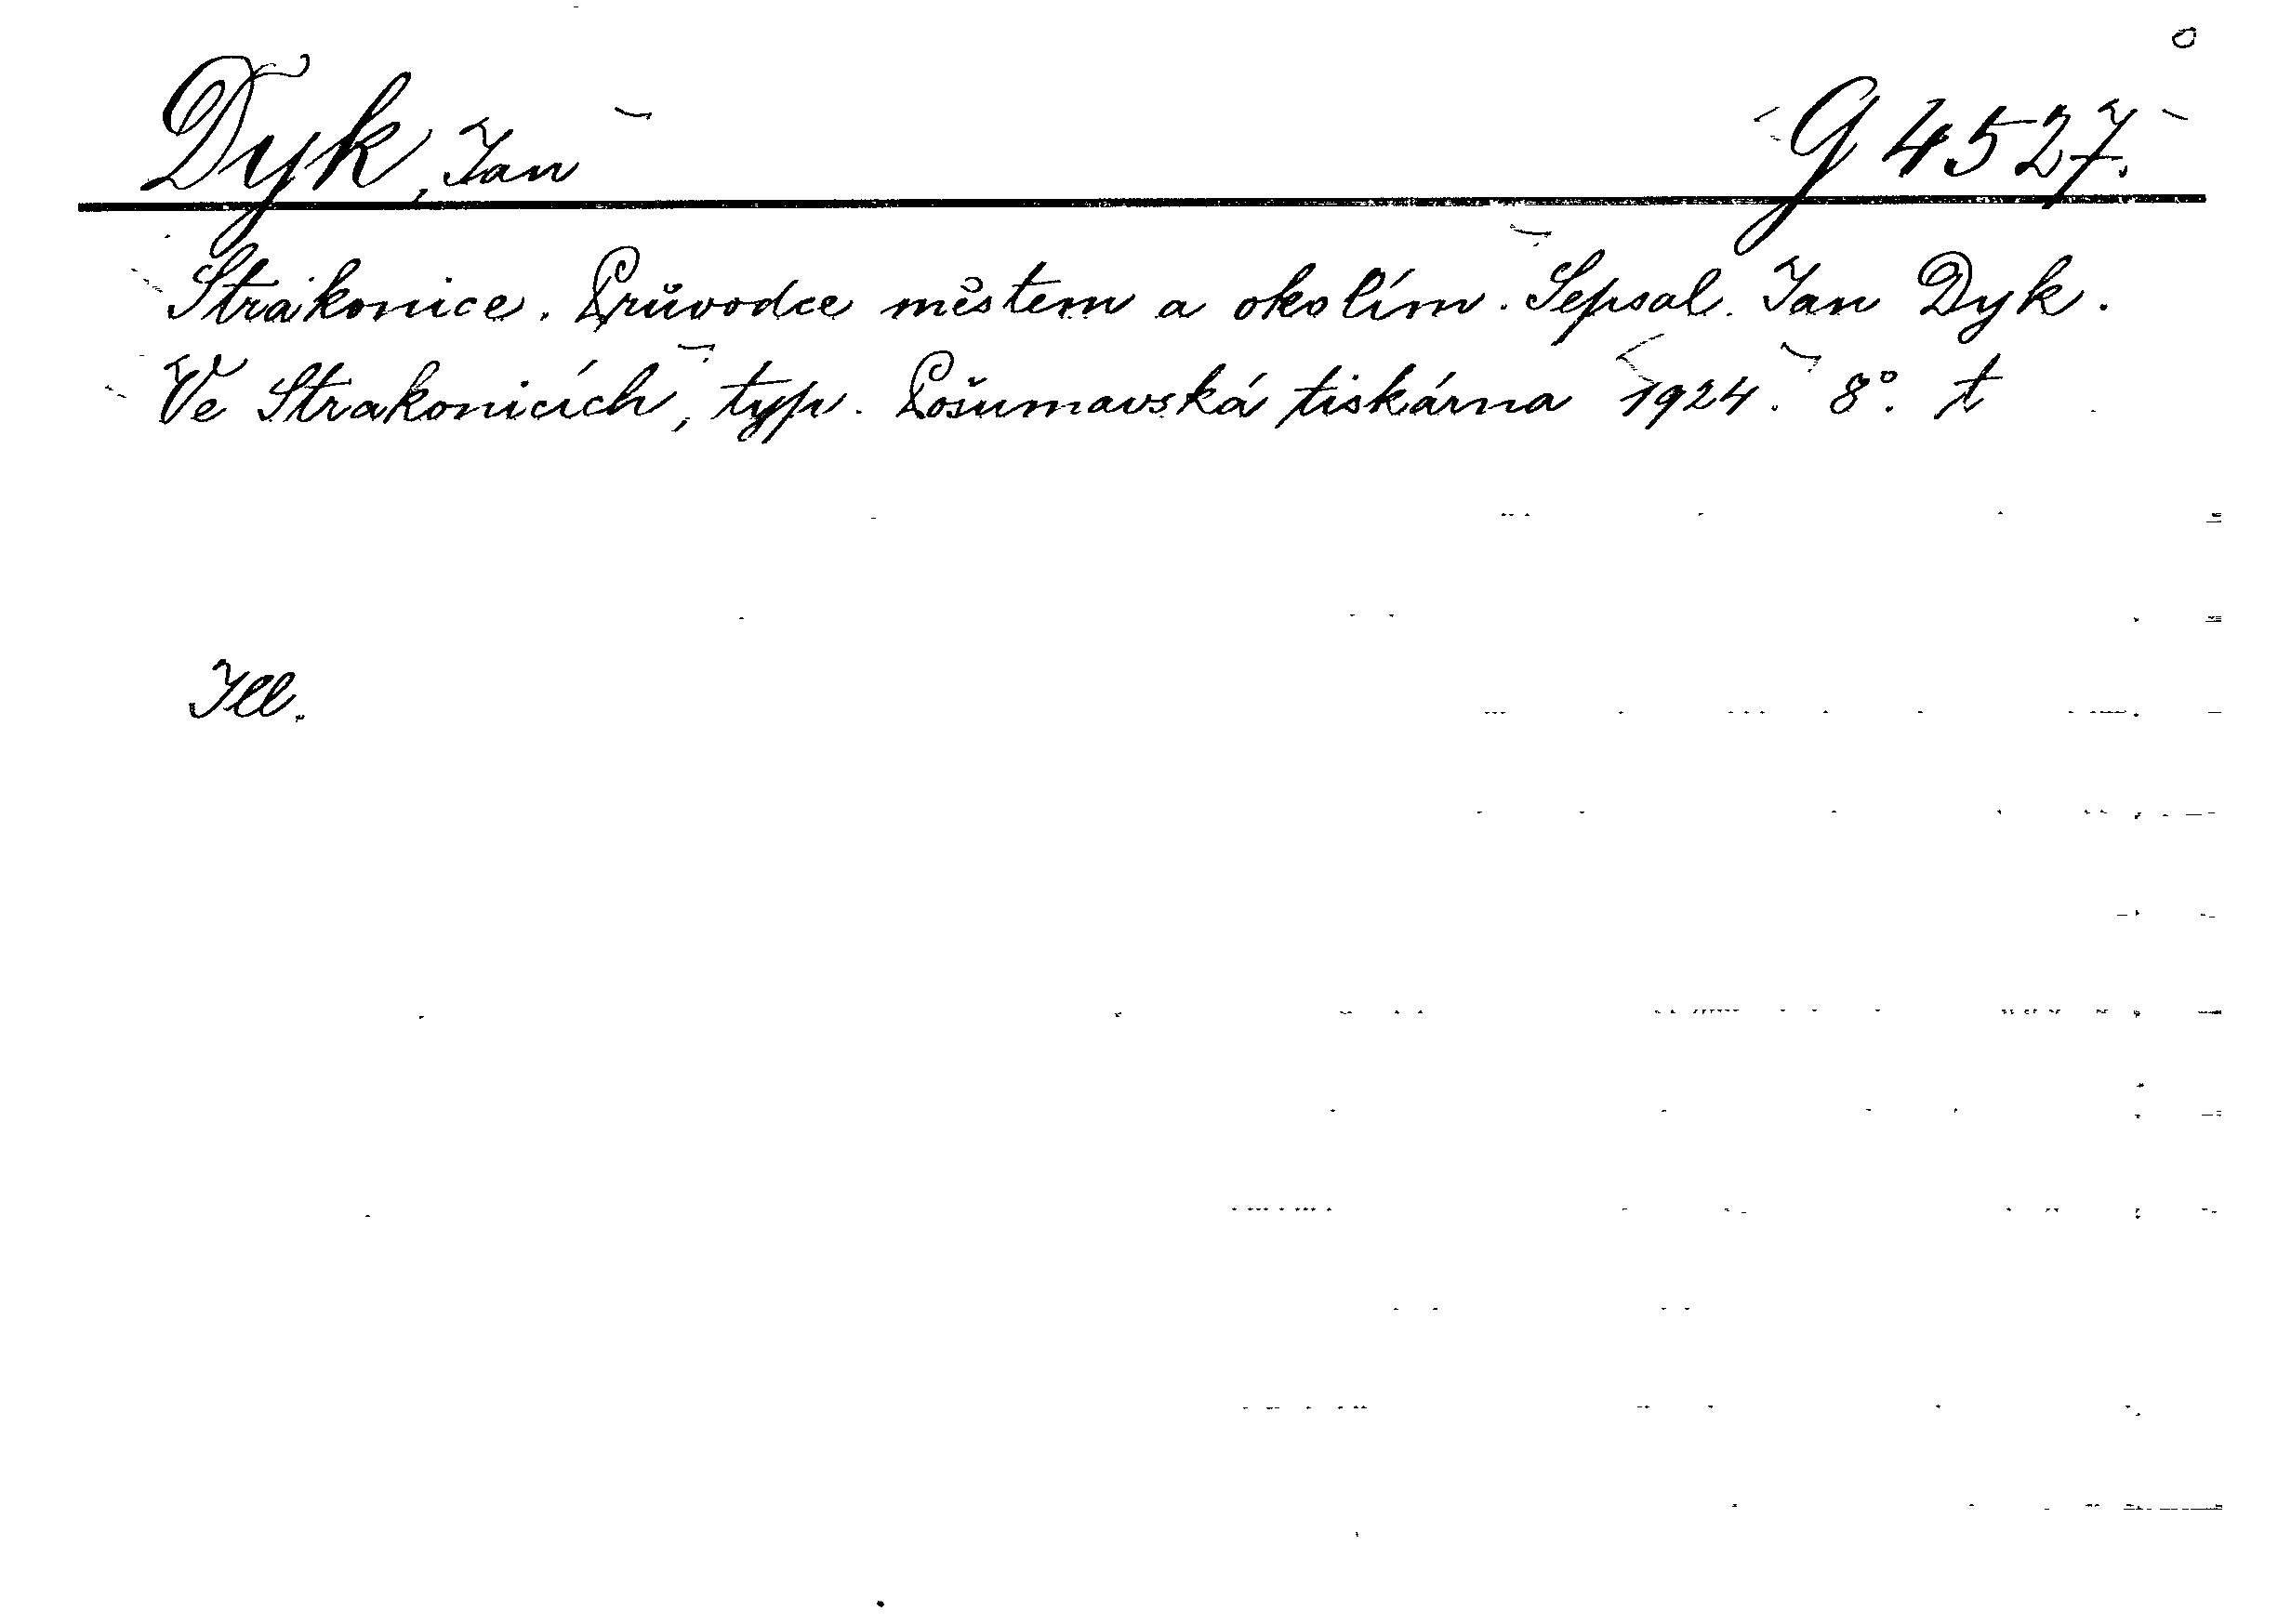 Dyk, Jan G 4527.
Strakonice. Průvodce městem a okolím. Sepsal Jan Dyk.
Ve Strakonicích, typ. Pošumavská tiskárna 1924. 8°. t
Ill.